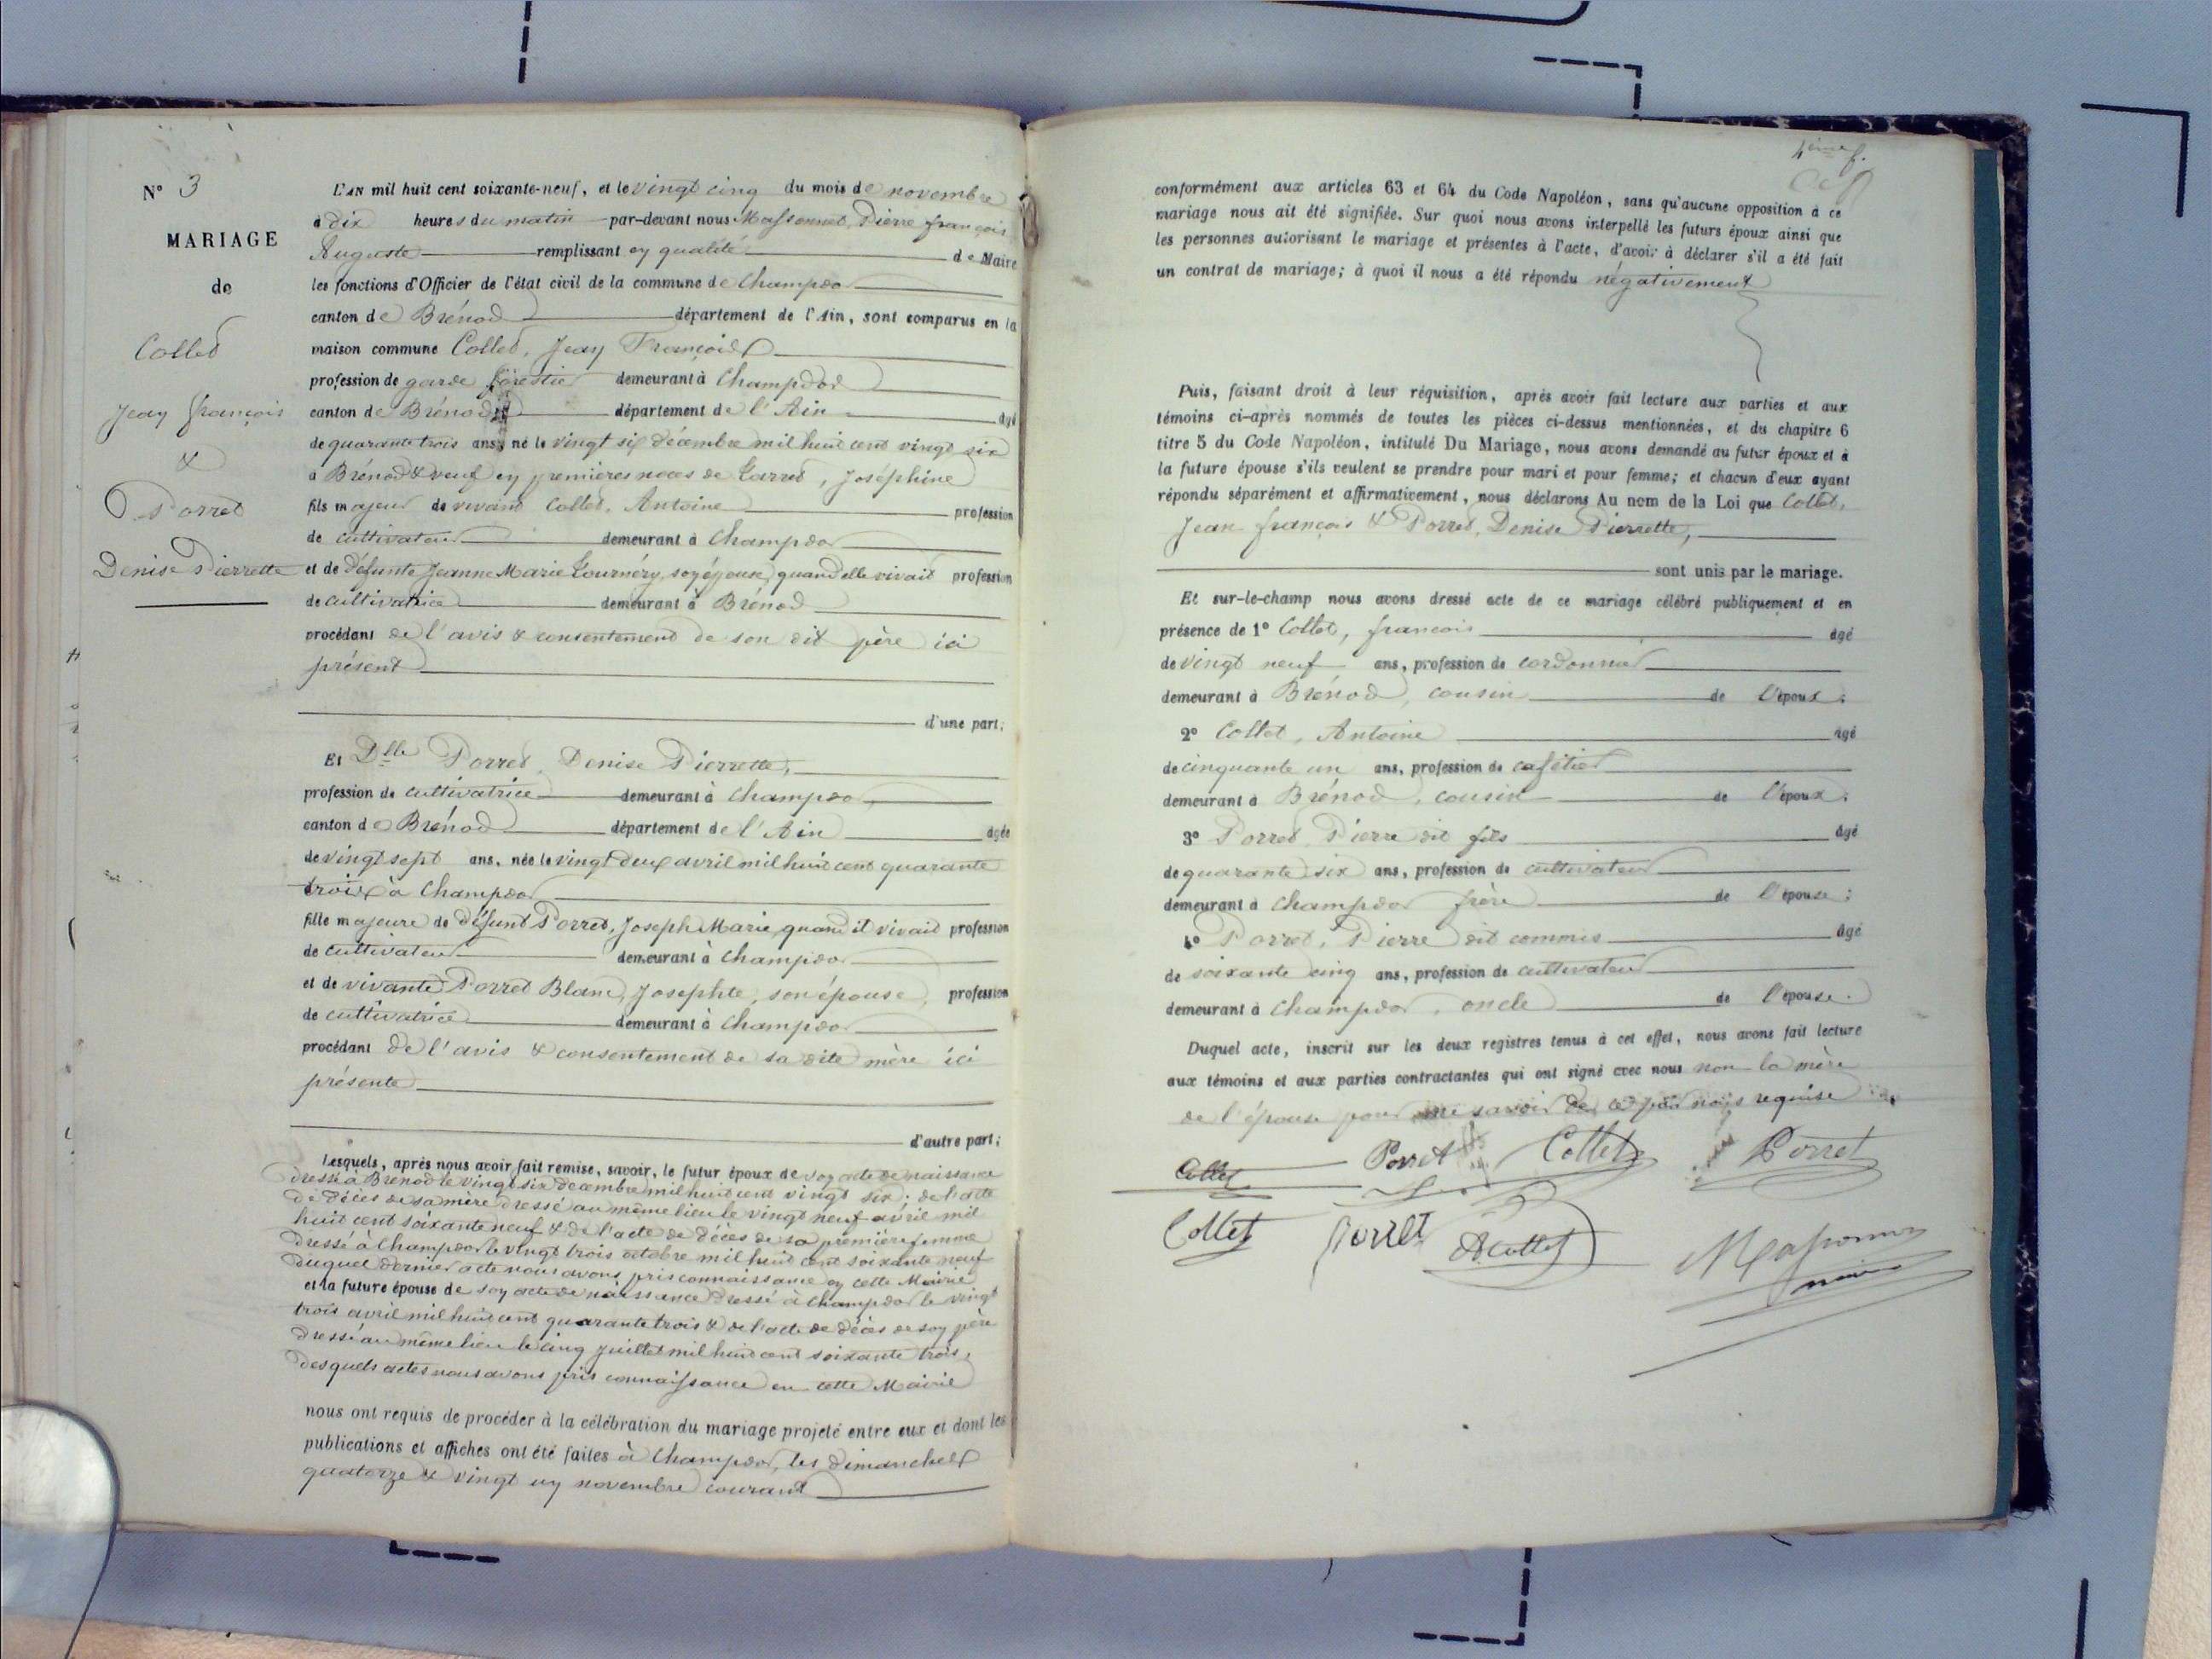 N° 3
MARIAGE
de
Collet
Jean françois
&
Porret
Denise Pierrette
L'AN mil huit cent soixante-neuf, et le vingt cinq du mois de novembre
à dix heures du matin par-devant nous Massonnet, Pierre françois
Auguste remplissant en qualité de Maire
les fonctions d'Officier de l'état civil de la commune de Champdor
canton de Brénod département de l'Ain, sont comparus en la
maison commune Collet, Jean François
profession de garde forestier demeurant à Champdor
canton de Brénod département de l'Ain âgé
de quarante trois ans, né le vingt six décembre mil huit cent vingt six
à Brénod & veuf en premières noces de Garred, Joséphine
fils majeur de vivant Collet, Antoine profession
de cultivateur demeurant à Champdor
et de défunte Jeanne Marie Gournéry, son épouse, quand elle vivait profession
de cultivatrice demeurant à Brénod
procédant de l'avis & consentement de son dit père ici
présent
d'une part;
Et Dlle Porret, Denise Pierrette,
profession de cultivatrice demeurant à Champdor
canton de Brénod département de l'Ain âgée
de vingt sept ans, née le vingt deux avril mil huit cent quarante
trois à Champdor
fille majeure de défunt Porret, Joseph Marie, quand il vivait profession
de cultivateur demeurant à Champdor
et de vivante Porret Blanc, Josephte, son épouse, profession
de cultivatrice demeurant à Champdor
procédant de l'avis & consentement de sa dite mère ici
présente
d'autre part;
Lesquels, après nous avoir fait remise, savoir, le futur époux de son acte de naissance
dressé à Brénod le vingt six décembre mil huit cent vingt six; de l'acte
de décès de sa mère dressé au même lieu le vingt neuf avril mil
huit cent soixante neuf & de l'acte de décès de sa première femme
dressé à Champdor le vingt trois octobre mil huit cent soixante neuf
duquel dernier acte nous avons pris connaissance en cette Mairie
et la future épouse de son acte de naissance dressé à Champdor le vingt
trois avril mil huit cent quarante trois & de l'acte de décès de son père
dressé au même lieu le cinq juillet mil huit cent soixante trois,
desquels actes nous avons pris connaissance en cette Mairie
nous ont requis de procéder à la célébration du mariage projeté entre eux et dont les
publications et affiches ont été faites à Champdor, les dimanches
quatorze & vingt un novembre courant
4ème f.
conformément aux articles 63 et 64 du Code Napoléon, sans qu'aucune opposition à ce
mariage nous ait été signifiée. Sur quoi nous avons interpellé les futurs époux ainsi que
les personnes autorisant le mariage et présentes à l'acte, d'avoir à déclarer s'il a été fait
un contrat de mariage; à quoi il nous a été répondu négativement
Puis, faisant droit à leur réquisition, après avoir fait lecture aux parties et aux
témoins ci-après nommés de toutes les pièces ci-dessus mentionnées, et du chapitre 6
titre 5 du Code Napoléon, intitulé Du Mariage, nous avons demandé au futur époux et à
la future épouse s'ils veulent se prendre pour mari et pour femme; et chacun d'eux ayant
répondu séparément et affirmativement, nous déclarons Au nom de la Loi que Collet,
Jean françois & Porret, Denise Pierrette,
sont unis par le mariage.
Et sur-le-champ nous avons dressé acte de ce mariage célébré publiquement et en
présence de 1° Collet, françois âgé
de vingt neuf ans, profession de cordonnier
demeurant à Brénod, cousin de l'époux;
2° Collet, Antoine âgé
de cinquante un ans, profession de cafétier
demeurant à Brénod, cousin de l'époux;
3° Porret, Pierre dit fils âgé
de quarante six ans, profession de cultivateur
demeurant à Champdor frère de l'épouse;
4° Porret, Pierre dit commis âgé
de soixante cinq ans, profession de cultivateur
demeurant à Champdor, oncle de l'épouse.
Duquel acte, inscrit sur les deux registres tenus à cet effet, nous avons fait lecture
aux témoins et aux parties contractantes qui ont signé avec nous non la mère
de l'épouse pour ne savoir de ce par nous requise
Collet Porret Collet Porret
Collet Porret A Collet Massonnet
maire